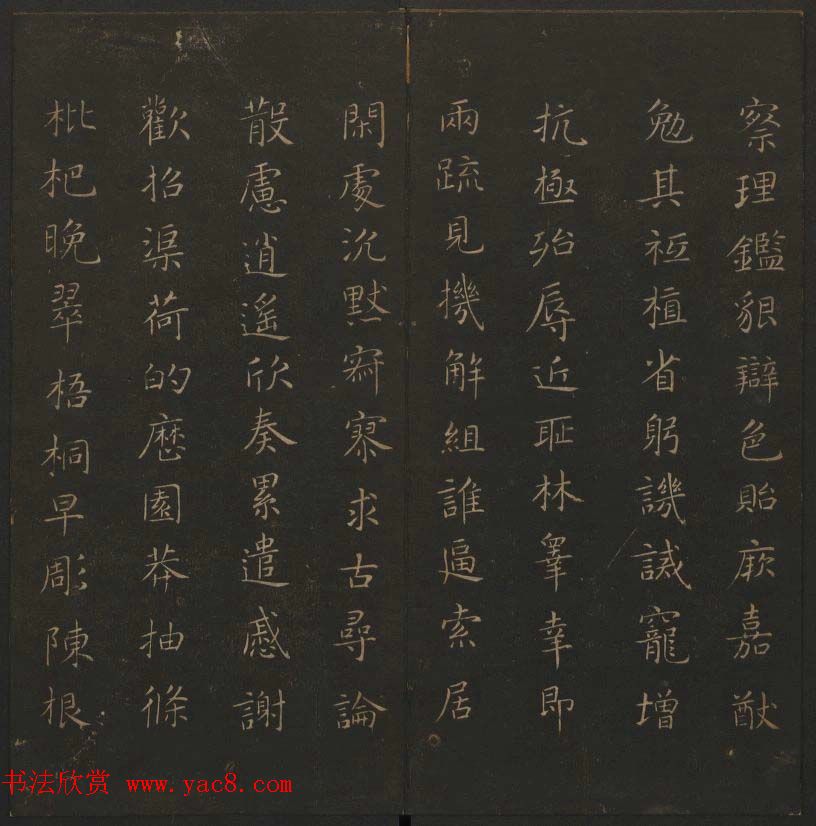 察理鑑貌辯色貽厥嘉猷
勉其祗植省躬譏誡寵增
抗極殆辱近恥林睾幸即
兩疏見機解組誰逼索居
閑處沉默寂寥求古尋論
散慮逍遙欣奏累遣慼謝
歡招渠荷的歷園莽抽條
枇杷晚翠梧桐早彫陳根
书法欣赏 www.yac8.com